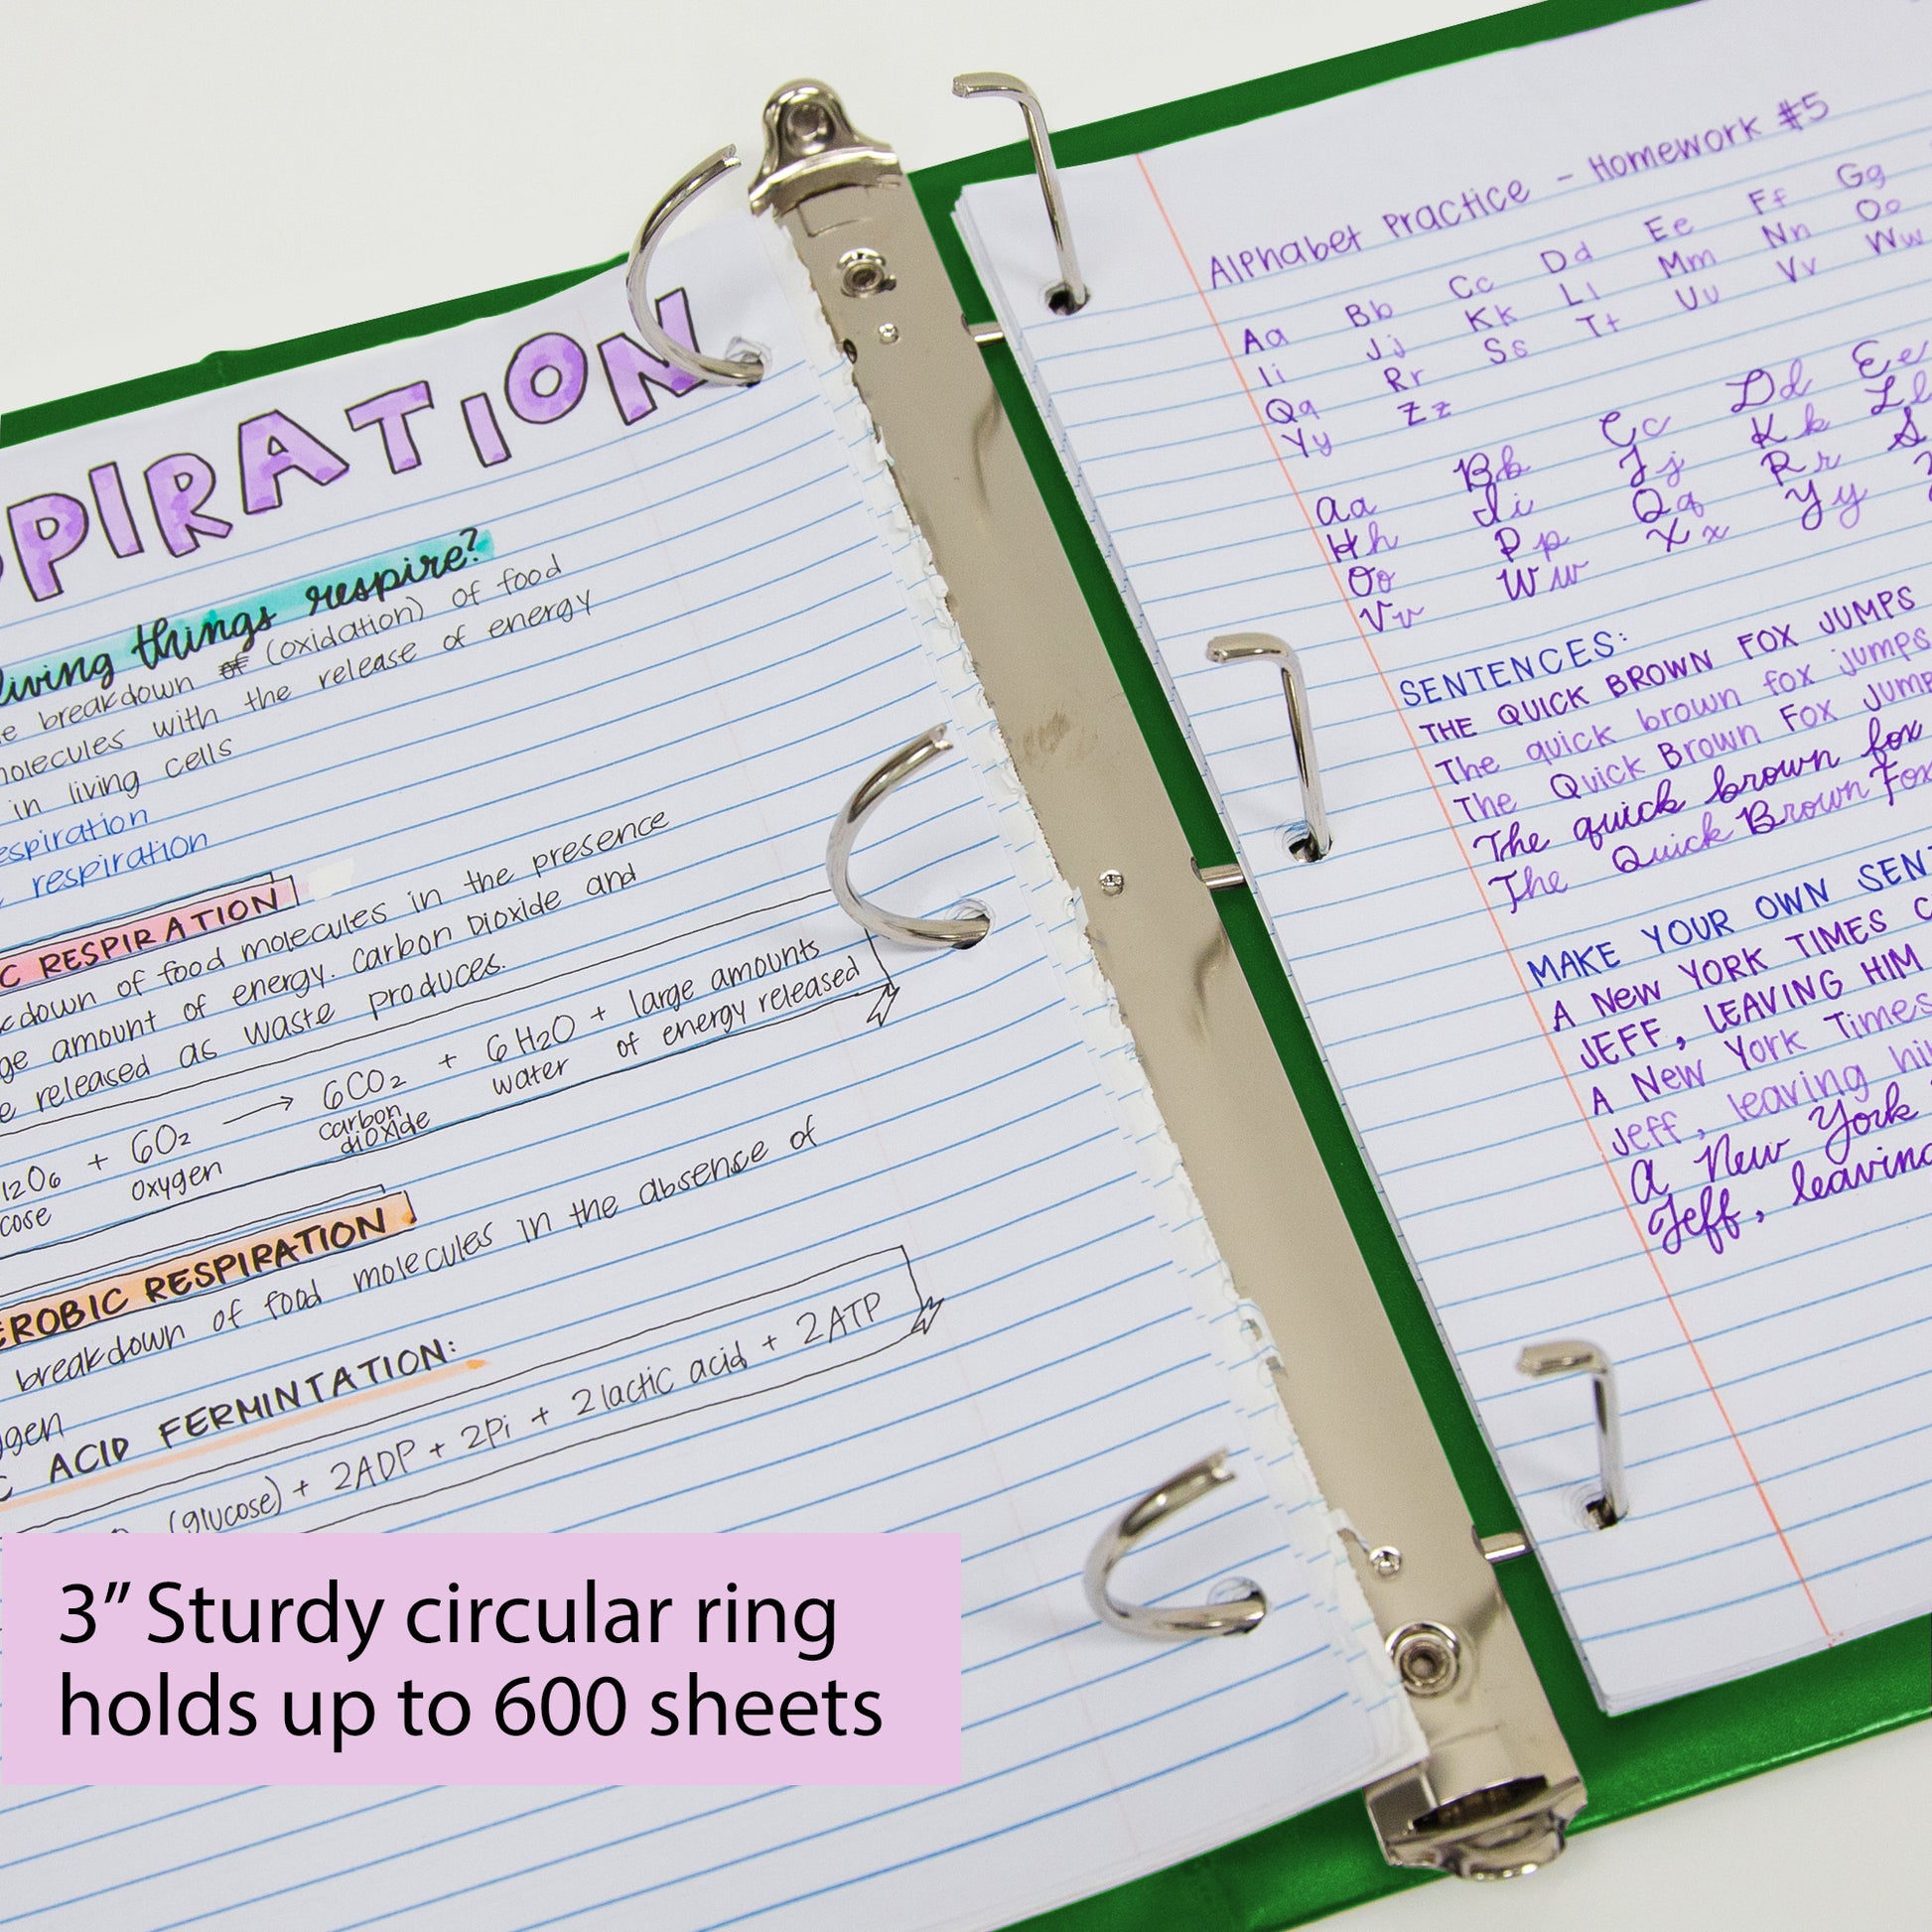 PIRATION
living things respire?
breakdown of (oxidation) of food
molecules with the release of energy
in living cells
respiration
respiration
C RESPIRATION
down of food molecules in the presence
amount of energy. Carbon Dioxide and
released as waste produces.
12O6 + 6O2 → 6CO2 + 6H2O + large amounts
cose oxygen carbon dioxide water of energy released
EROBIC RESPIRATION
breakdown of food molecules in the absence of
gen
C ACID FERMINTATION:
(glucose) + 2ADP + 2Pi + 2 lactic acid + 2ATP
Alphabet Practice - Homework #5
Aa Bb Cc Dd Ee Ff Gg
Ii Jj Kk Ll Mm Nn Oo
Qq Rr Ss Tt Uu Vv Ww
Yy Zz
Aa Bb Cc Dd Ee
Hh Ii Jj Kk Ll
Oo Pp Qq Rr S
Vv Ww Xx Yy
SENTENCES:
THE QUICK BROWN FOX JUMPS
The quick brown fox jumps
The Quick Brown Fox Jump
The quick brown fox
The Quick Brown Fox
MAKE YOUR OWN SENT
A NEW YORK TIMES C
JEFF, LEAVING HIM
A New York Times
Jeff, leaving hi
A New York
Jeff, leaving
3” Sturdy circular ring
holds up to 600 sheets